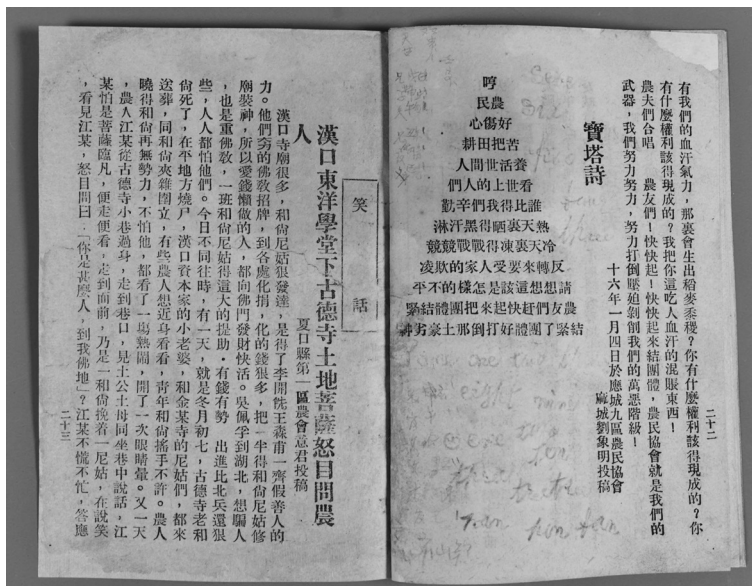 二十二
有我們的血汗氣力，那裏會生出稻麥黍稷？你有什麼權利該得現成的？你
有什麼權利該得現成的？我把你這吃人血汗的混賬東西！
農夫們合唱　農友們！快快起！快快起來結團體，農民協會就是我們的
武器，我們努力努力，努力打倒壓迫剝削我們的萬惡階級！
十六年一月四日於應城九區農民協會
寶塔詩
麻城劉象明投稿
哼
農民
好傷心
苦把田耕
養活世間人
看世上的人們
誰比我們得辛勤
熱天裏晒得黑汗淋
冷天裏凍得戰戰競競
反轉來要受人家的欺凌
請想想這該是怎樣的不平
農友們趕快起來把團體結緊
結緊了團體好打倒那土豪劣
笑話
漢口東洋學堂下古德寺土地菩薩怒目問農
人
夏口縣第一區農會意君投稿
漢口寺廟很多，和尙尼姑狠發達，是得了李開侁王森甫一齊假善人的
力。他們夯的佛敎招牌，到各處化捐，化的錢狠多，把一半得和尙尼姑修
廟裝神，所以愛錢懶做的人，都向佛門發財快活。吳佩孚到湖北，想騙人
，也是重佛敎，一班和尙尼姑得這大的提助。有錢有勢　出進比北兵還狠
些，人人都怕他們。今日不同往時，有一天，就是冬月初七，古德寺老和
尙死了，在平地方燒尸，漢口資本家的小老婆，和金某寺的尼姑們，都來
送葬，同和尙夾雜圍立，有些農人想近身看看，靑年和尙搖手不許。農人
曉得和尙再無勢力，不怕他，都看了一塲熱鬧，開了一次眼睛暈。又一天
，農人江某從古德寺小巷過身，走到巷口，見土公土母同坐巷中說話，江
某怕是菩薩臨凡，便走便看，走到面前，乃是一和尙挽着一尼姑，在說笑
，看見江某，怒目問曰：「你是甚麼人，到我佛地」？江某不慌不忙，答應
二十三